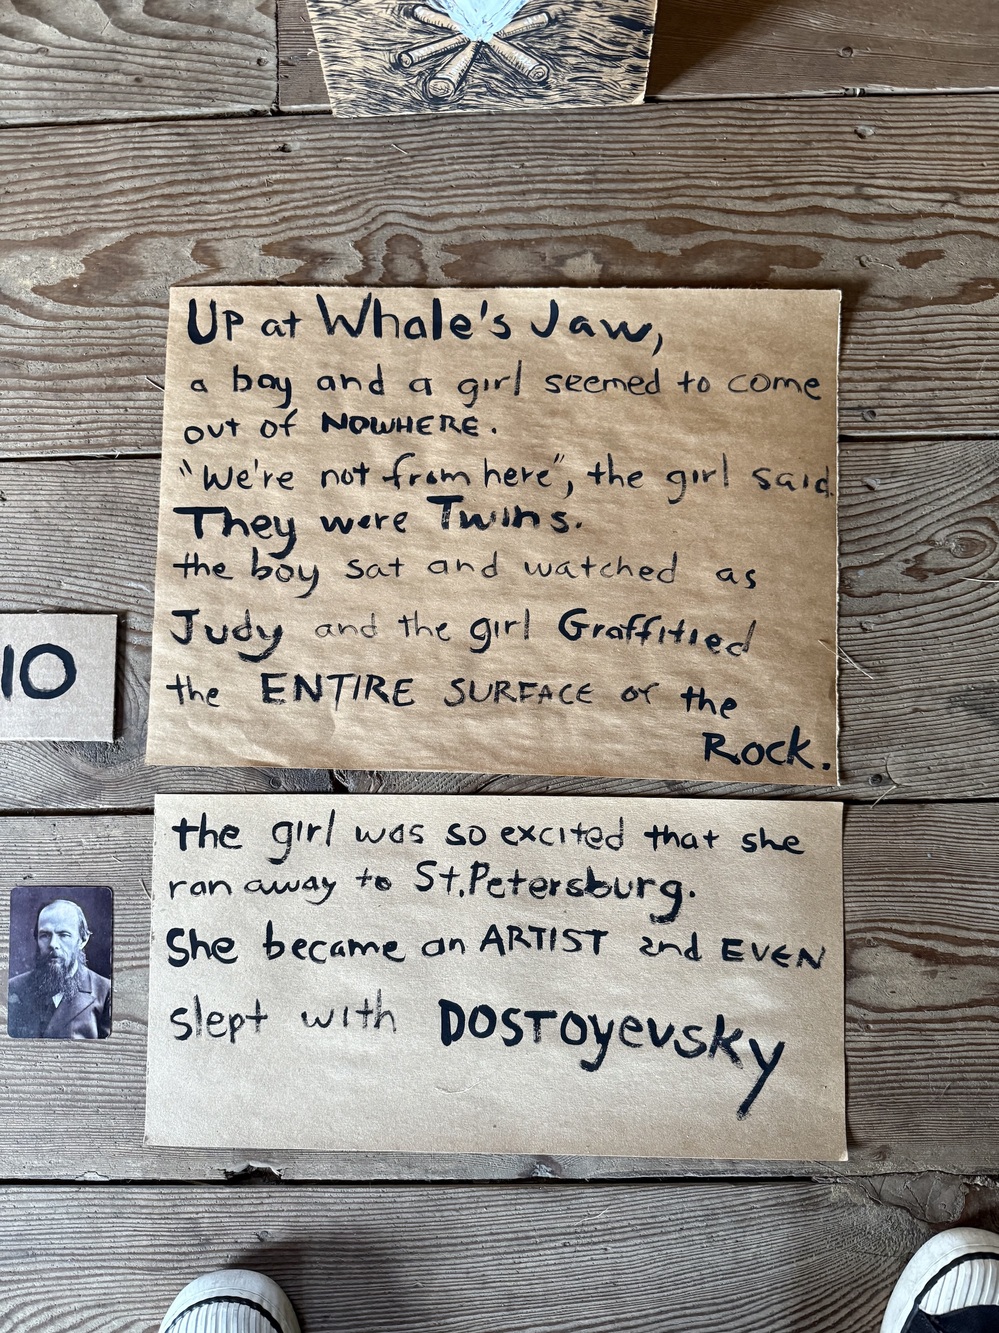 Up at Whale's Jaw,
a boy and a girl seemed to come
out of NOWHERE.
"We're not from here", the girl said.
They were Twins.
the boy sat and watched as
Judy and the girl Graffitied
the ENTIRE SURFACE of the
Rock.
10
the girl was so excited that she
ran away to St. Petersburg.
She became an ARTIST and EVEN
slept with DOSTOyevsky